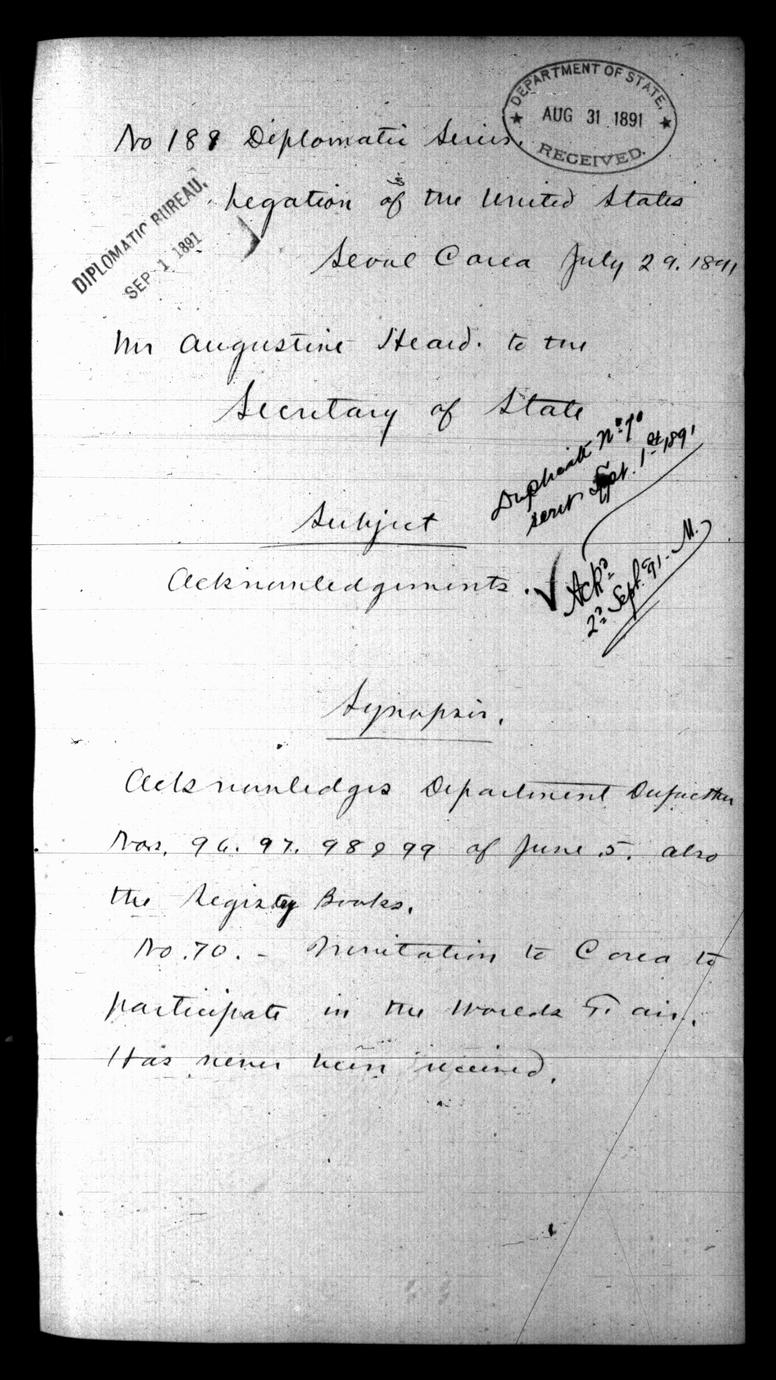 DEPARTMENT OF STATE,
AUG 31 1891
RECEIVED.
No 188 Diplomatic Series.
DIPLOMATIC BUREAU,
SEP 1 1891
Legation of the United States
Seoul Corea July 29. 1891
Mr Augustine Heard. to the
Secretary of State
Duplicate No. 70
sent Sept. 1st 1891
Subject
Acknowledgements.
Ackd
2d Sept. 91 - M.
Synopsis.
Acknowledges Department Dispatches
Nos. 96. 97. 98 & 99 of June 5. also
the Registry Books.
No. 70. - Invitation to Corea to
participate in the Worlds Fair.
Has never been received.